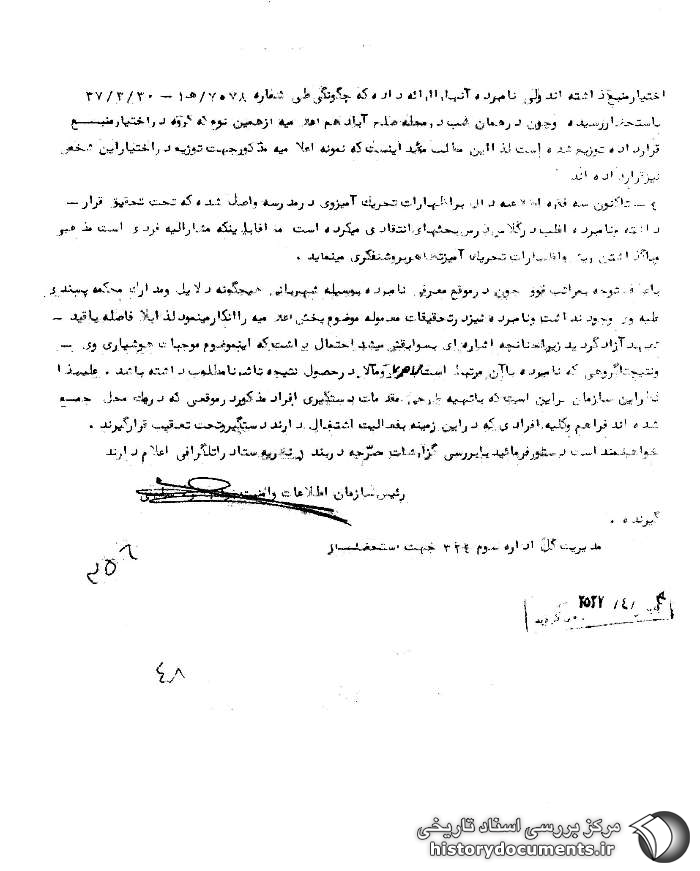 اختیار منبع گذاشته اند ولی نامبرده آنها را ارائه داده که چگونگی طی شماره ۷۵۷۸/ه‍ ۱ – ۳۷/۳/۳۰
باستحضار رسیده و چون در همان شب در محله علم آباد هم اعلامیه از همین نوع که در اختیار منبع
قرار داده توزیع شده است لذا این مطلب مؤید اینست که نمونه اعلامیه مذکور جهت توزیع در اختیار این شخص
نیز قرار داده اند
۴ – تاکنون سه فقره اطلاعیه دال بر اظهارات تحریک آمیز وی در مدرسه واصل شده که تحت تحقیق قرار –
داشته و نامبرده اغلب در کلاس درس بحثهای انتقادی میکرده است ضمناً با اینکه مشارالیه فردی است مذهبی
با گذاشتن ریش و اظهارات تحریک آمیز تظاهر بروشنفکری مینماید .
با عطف توجه بمراتب فوق چون در موقع معرفی نامبرده بوسیله شهربانی هیچگونه دلایل و مدارک محکمه پسندی
علیه وی وجود نداشت و نامبرده نیز در تحقیقات معموله موضوع پخش اعلامیه را انکار مینمود لذا بلافاصله با قید –
تعهد آزاد گردید زیرا چنانچه اشاره ای بسوابقش میشد احتمال داشت که اینموضوع موجبات هوشیاری وی –
و نتیجتاً گروهی که نامبرده با آن مرتبط است و مآلاً در حصول نتیجه تاثیر نامطلوب داشته باشد . علیهذا
نظر این سازمان بر این است که با تهیه طرحی مقدمات دستگیری افراد مذکور در موقعی که در یک محل جمع
شده اند فراهم و کلیه افرادی که در این زمینه بفعالیت اشتغال دارند دستگیر و تحت تعقیب قرار گیرند .
خواهشمند است دستور فرمائید با بررسی گزارشات مندرجه در بند نظریه ستاد را تلگرافی اعلام دارند
رئیس سازمان اطلاعات و امنیت
گیرنده .
مدیریت کل اداره سوم ۳۲۴ جهت استحضار
۲۵۶
۲۵۳۷ /٤/
۴۸
مرکز بررسی اسناد تاریخی
historydocuments.ir